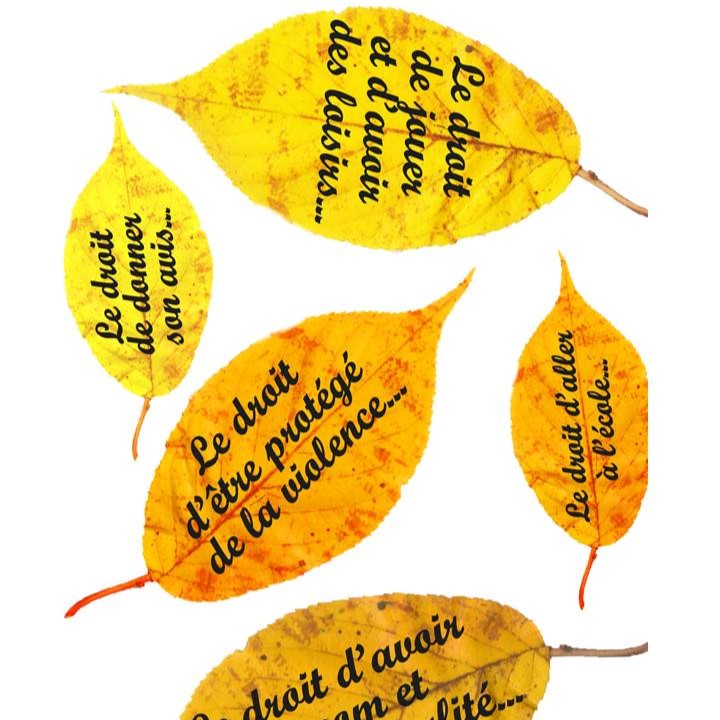 Le droit
de jouer
et d'avoir
des loisirs...
Le droit
de donner
son avis...
Le droit
d'être protégé
de la violence...
Le droit d'aller
à l'école...
droit d'avoir
et